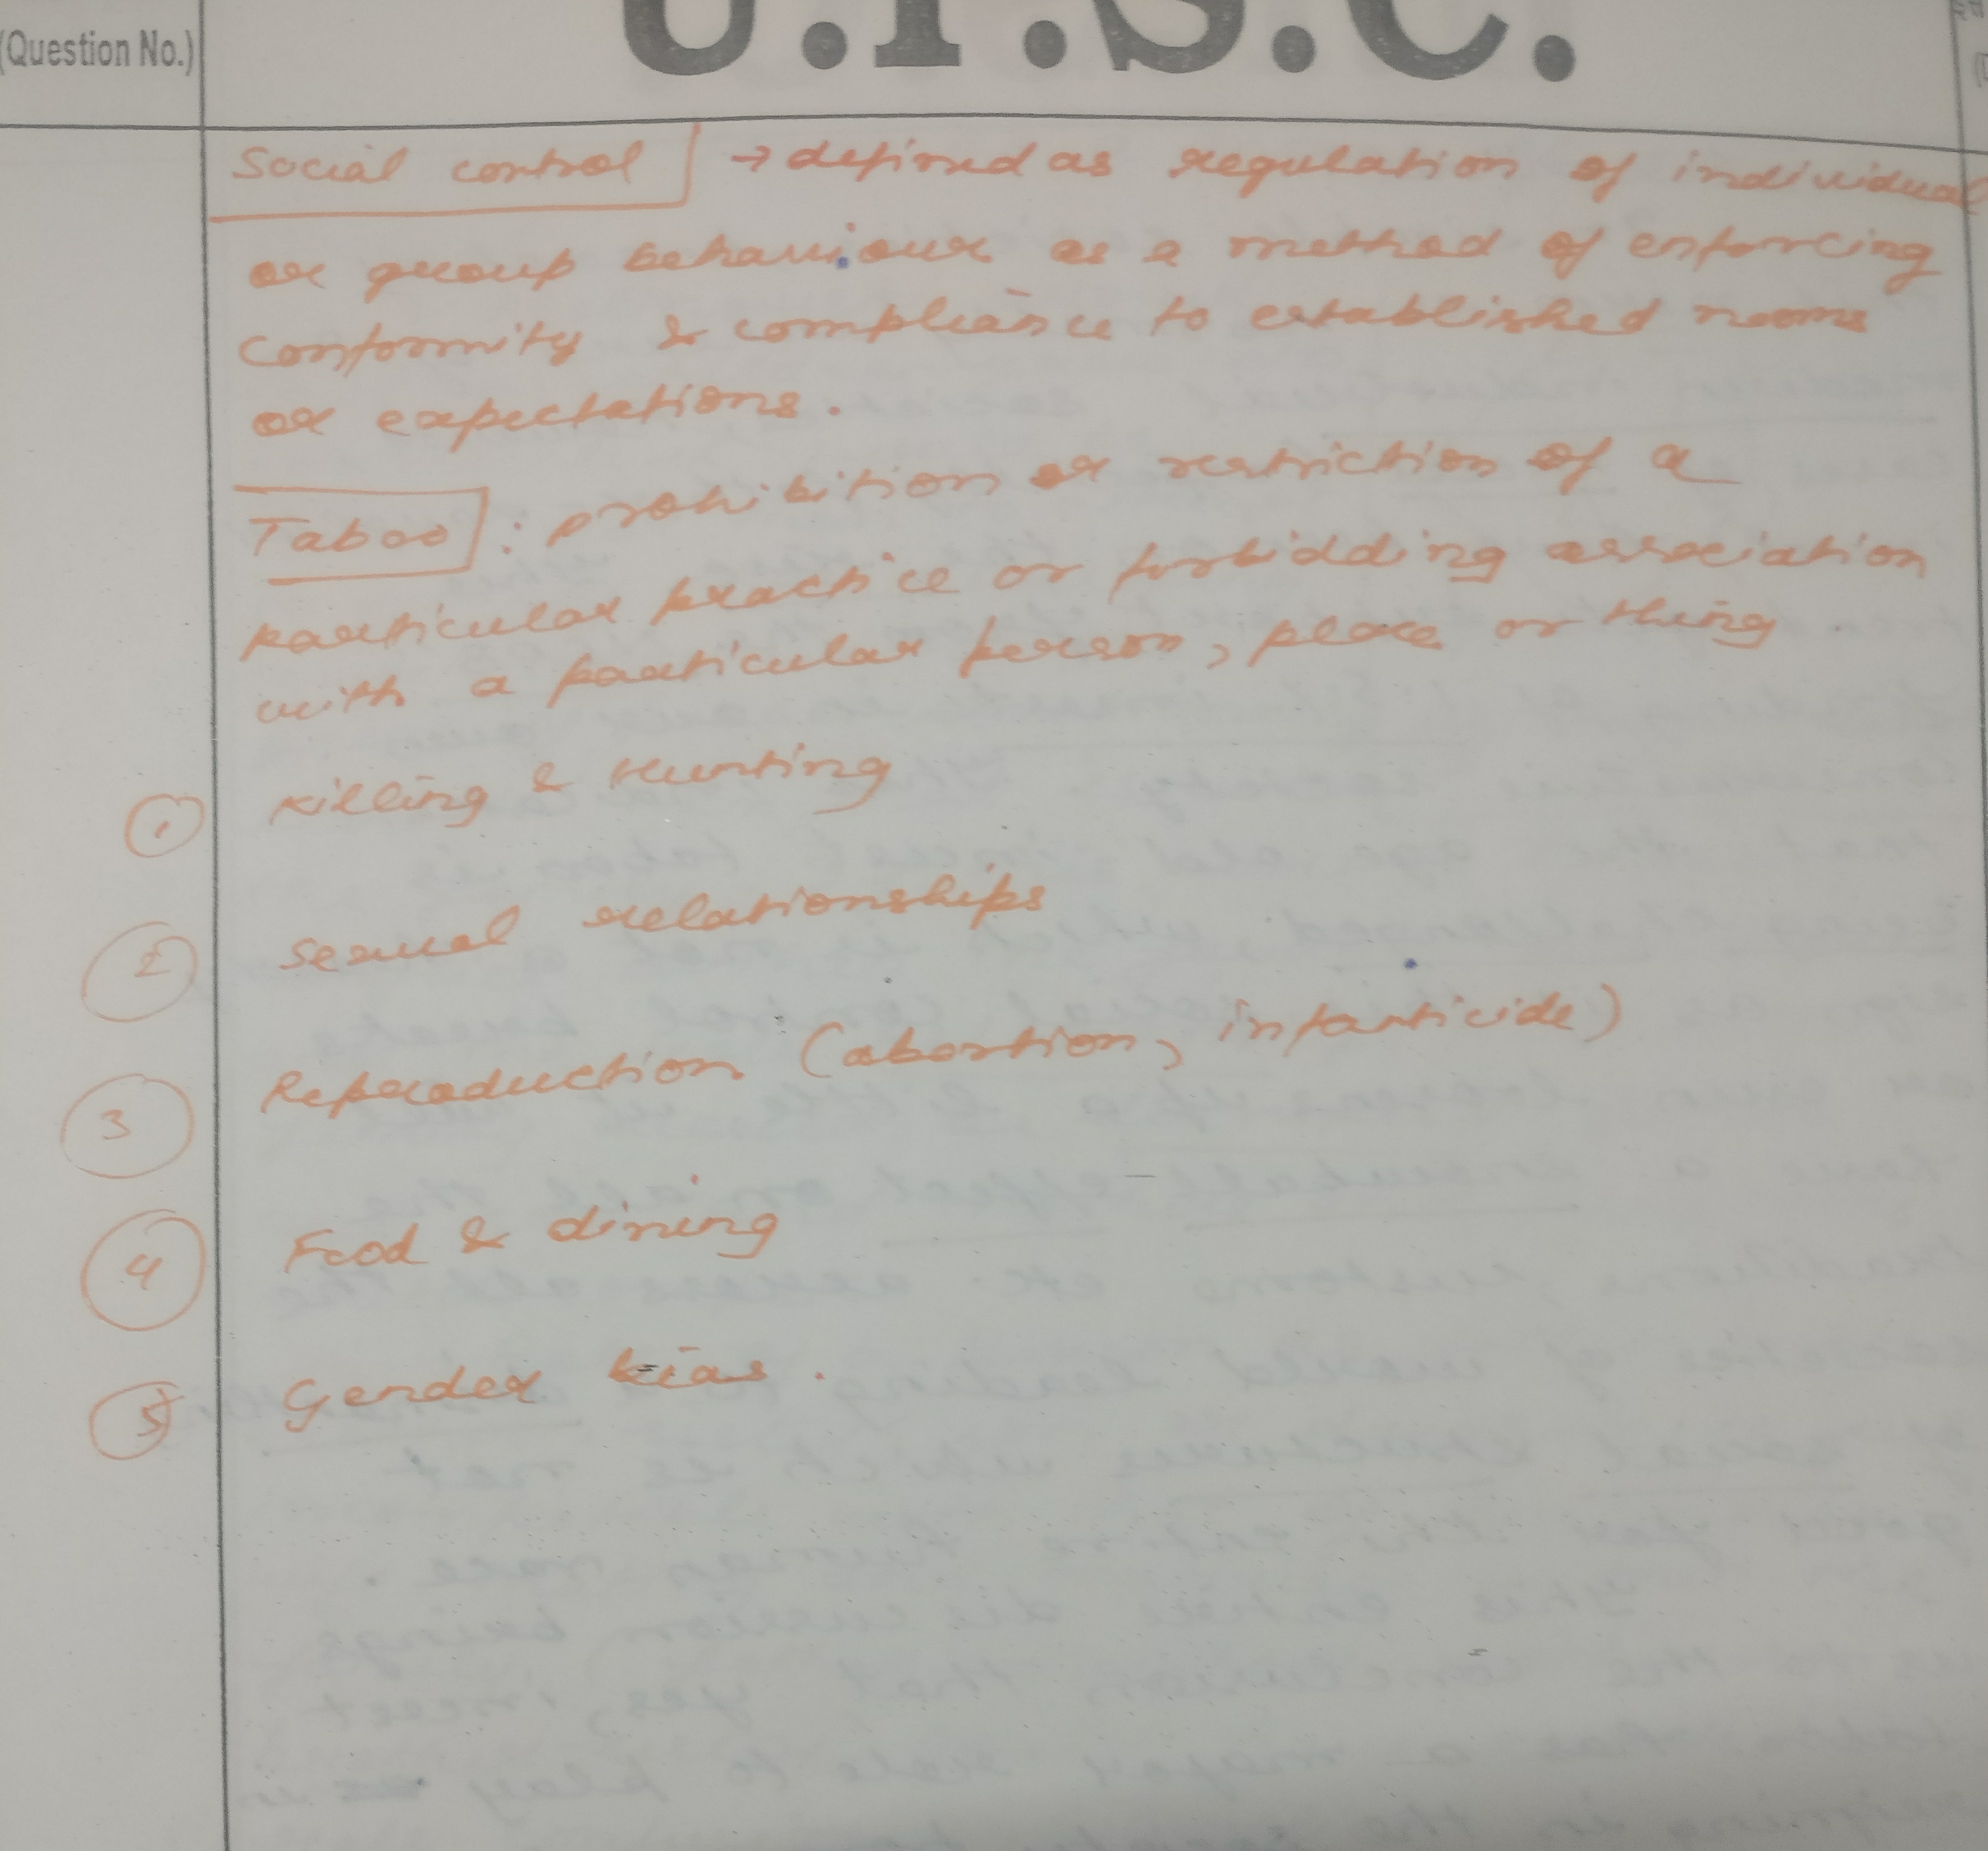 (Question No.)
U.P.S.C.
Social control → defined as regulation of individual
or group behaviour as a method of enforcing
conformity & compliance to established norms
or expectations.
Taboo : prohibition or restriction of a
particular practice or forbidding association
with a particular person, place or thing.
① Killing & Hunting
② Sexual relationships
③ Reproduction (abortion, infanticide)
④ Food & dining
⑤ Gender bias.